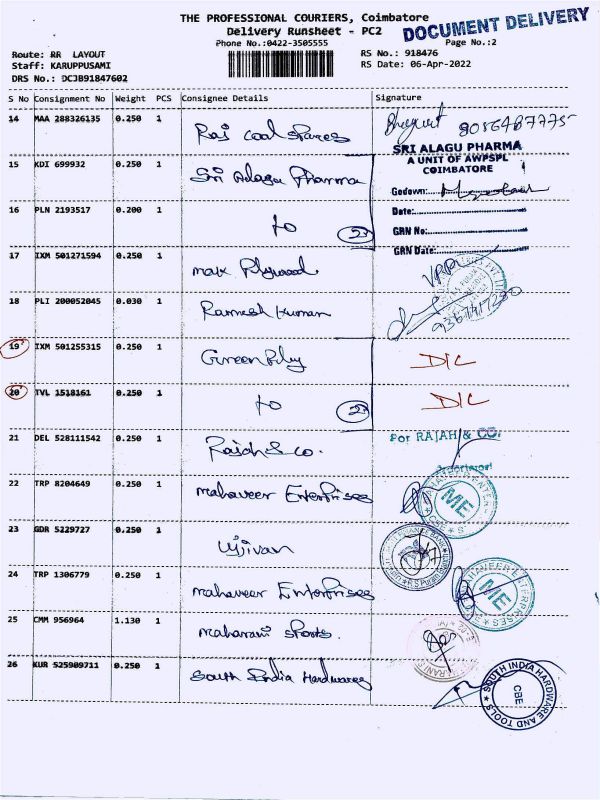 THE PROFESSIONAL COURIERS, Coimbatore
DOCUMENT DELIVERY
Delivery Runsheet - PC2
Phone No.:0422-3505555
Page No.:2
Route: RR LAYOUT
RS No.: 918476
Staff: KARUPPUSAMI
RS Date: 06-Apr-2022
DRS No.: DCJB91847602
S No Consignment No Weight PCS Consignee Details Signature
14 MAA 288326135 0.250 1 Raj Coal Spares
SRI ALAGU PHARMA
A UNIT OF AWPSPL
COIMBATORE
15 KDI 699932 0.250 1 Sri Alagu Pharma
Godown:
16 PLN 2193517 0.200 1 to
Date:
GRN No:
GRN Date:
17 IXM 501271594 0.250 1 max Plywood
18 PLI 200052045 0.030 1 Ramesh Kumar
19 IXM 501255315 0.250 1 Green Ply DIC
20 TVL 1518161 0.250 1 to DIC
21 DEL 528111542 0.250 1 Rajah & co. For RAJAH & CO.
22 TRP 8204649 0.250 1 mahaveer Enterprises ME
23 GDR 5229727 0.250 1 ujjivan
24 TRP 1306779 0.250 1 mahaveer Enterprises MAHAVEER ENTERPRISES ME
25 CMM 956964 1.130 1 maharani sports.
26 KUR 525909711 0.250 1 South India Hardwares SOUTH INDIA HARDWARE AND TOOLS CBE